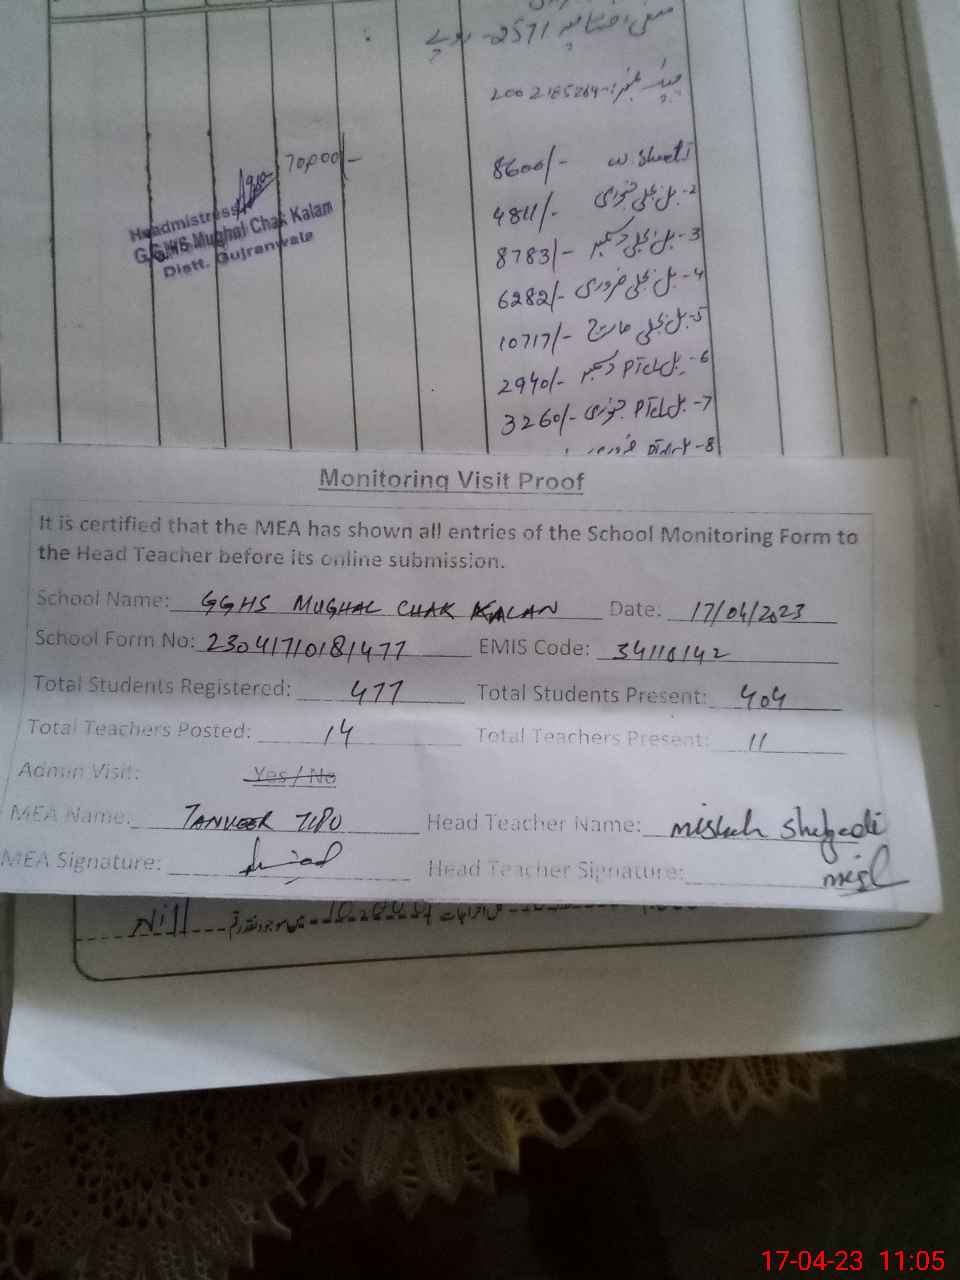 2571-
2002185264-
70,000/-
Headmistress
G.G.H/S Mughal Chak Kalam
Distt. Gujranwala
8600/- w. sheets
4811/- 2- بل بجلی جنوری
8783/- 3- بل بجلی دسمبر
6282/- 4- بل بجلی فروری
10717/- 5- بل بجلی مارچ
2940/- 6- بل PTCL دسمبر
3260/- 7- بل PTCL جنوری
8-
Monitoring Visit Proof
It is certified that the MEA has shown all entries of the School Monitoring Form to
the Head Teacher before its online submission.
School Name: GGHS MUGHAL CHAK KALAN Date: 17/04/2023
School Form No: 23041710181477 EMIS Code: 34110142
Total Students Registered: 477 Total Students Present: 404
Total Teachers Posted: 14 Total Teachers Present: 11
Admin Visit: Yes / No
MEA Name: TANVEER TIPU Head Teacher Name:
MEA Signature: Head Teacher Signature:
Nill
17-04-23 11:05